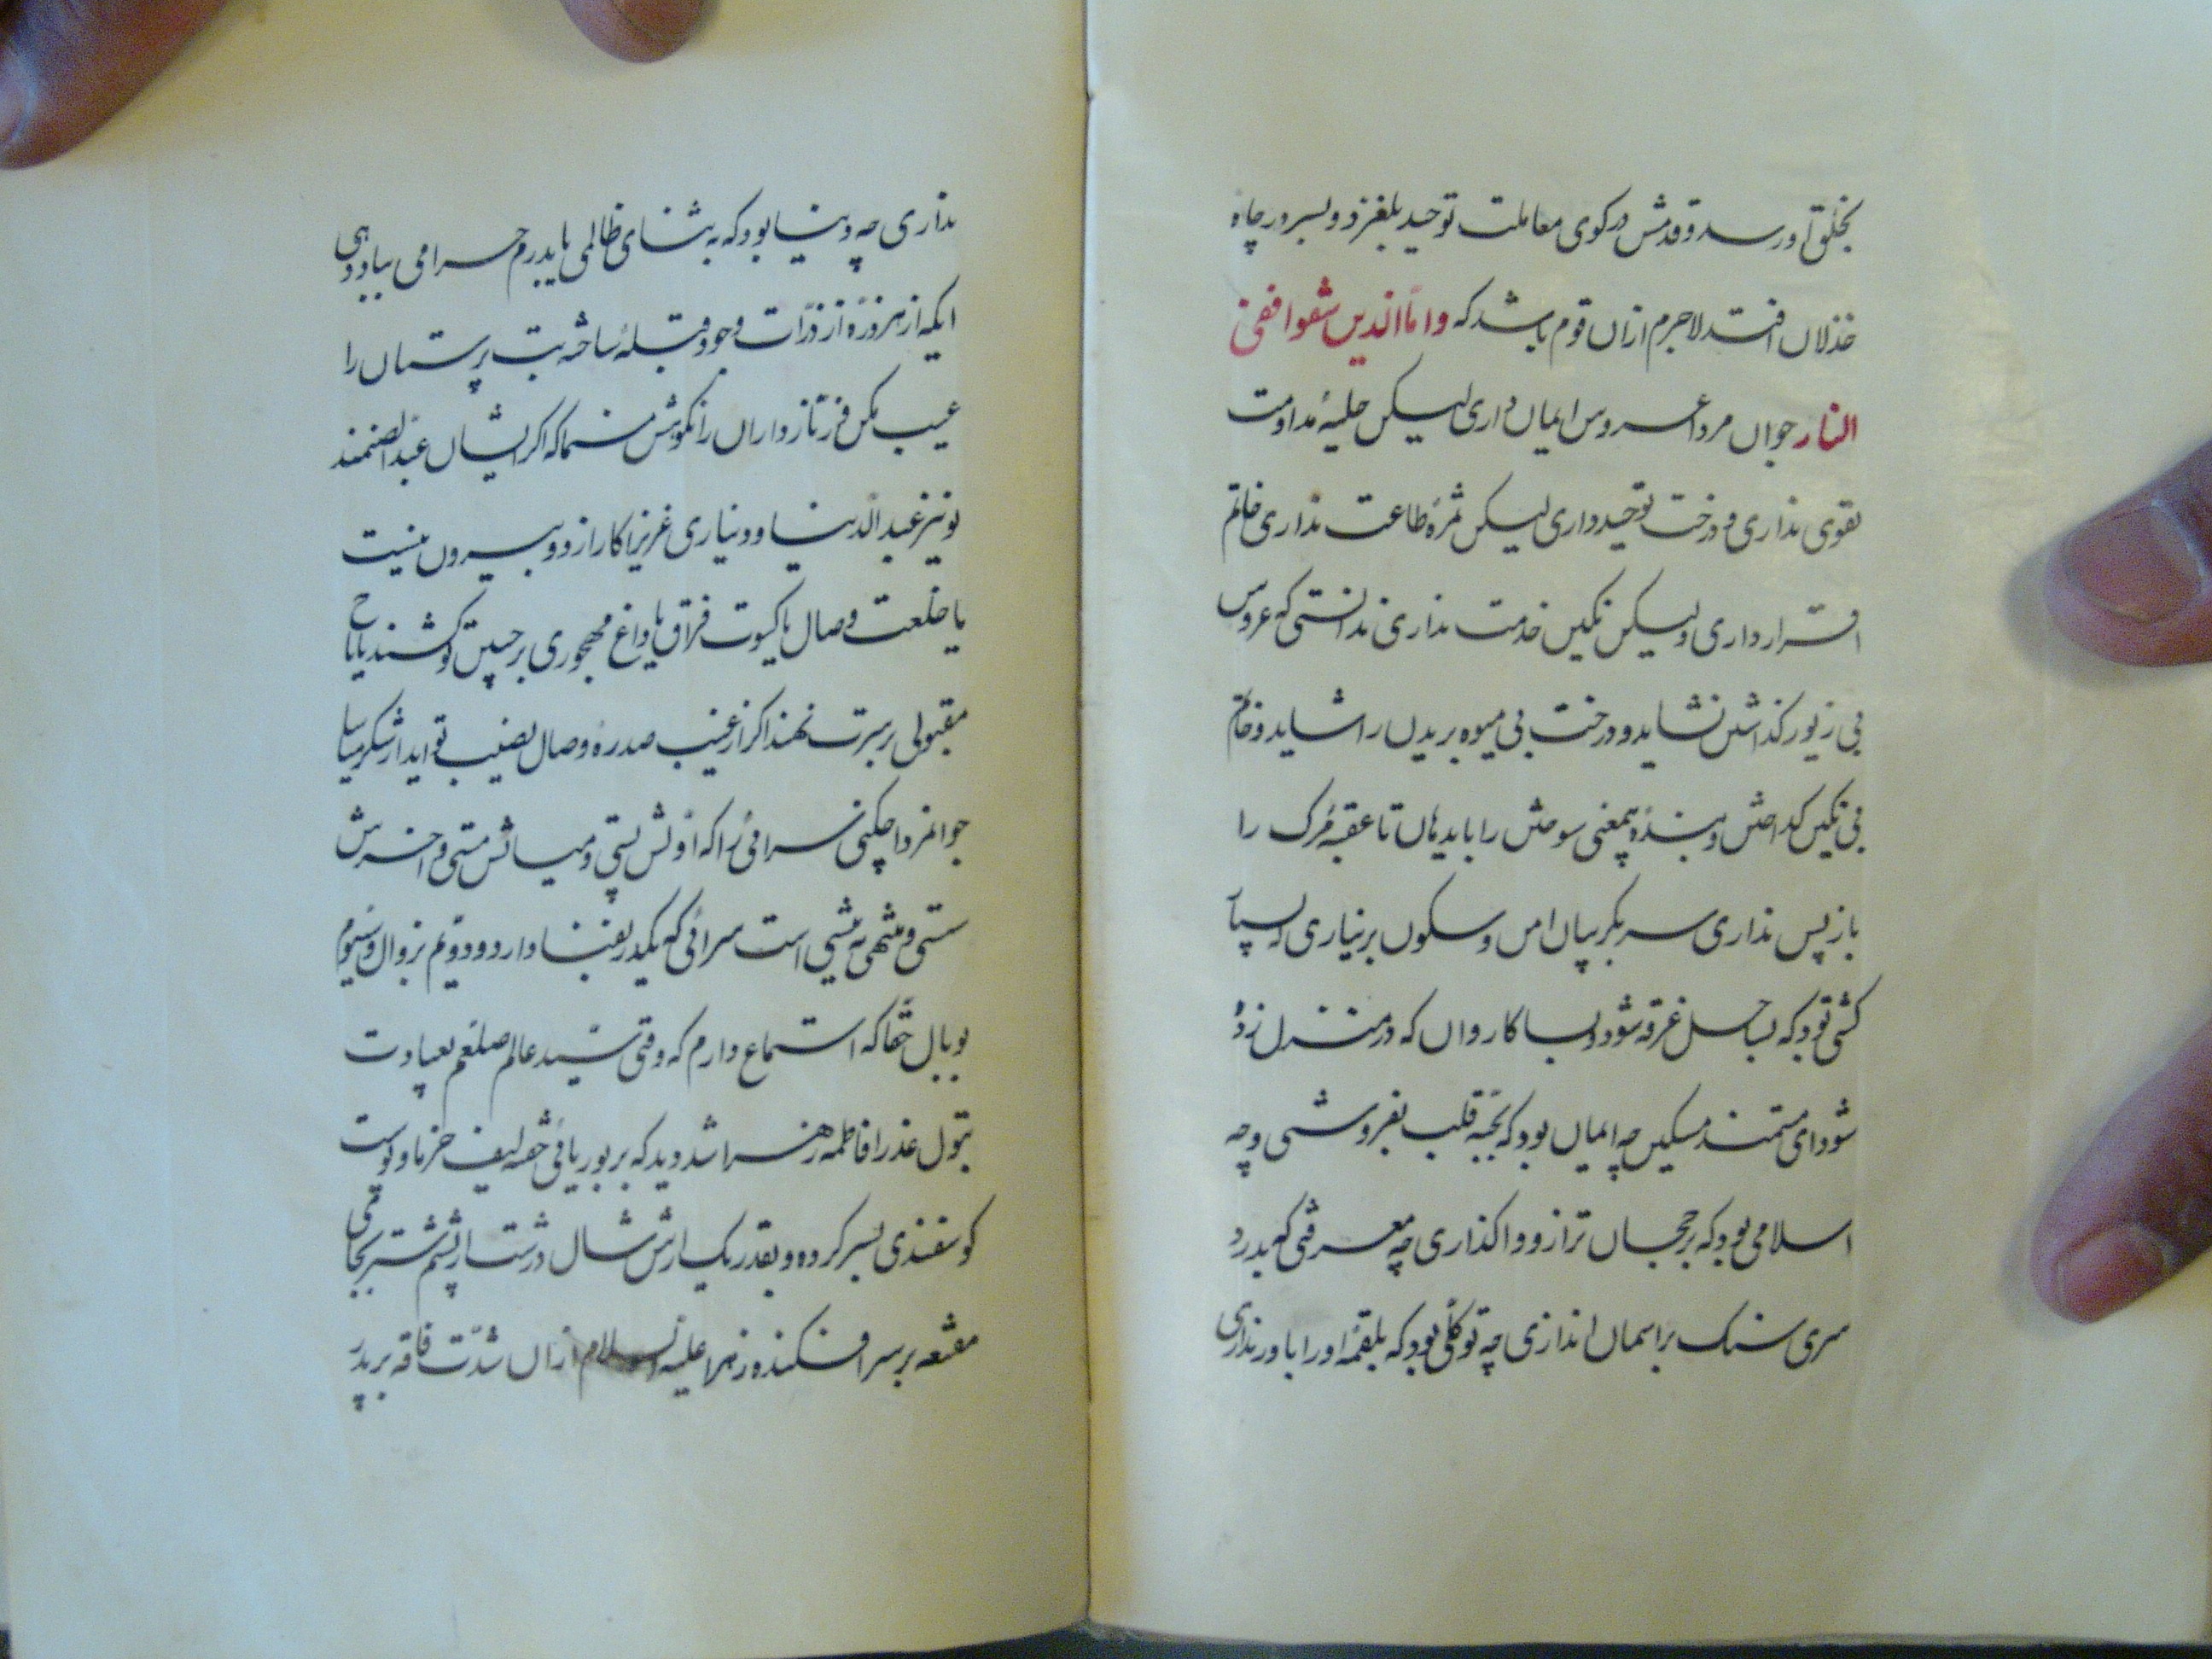 بخلق آورسد و قدمش در کوی معاملت توحید بلغزد و بسر در چاه
خذلان افتد لاجرم ازان قوم باشد که واما الذین شقوا ففی
النار جوان مردا عروس ایمان داری لیکن حلیهٔ مداومت
تقوی نداری و درخت توحید داری لیکن ثمرهٔ طاعت نداری خاتم
اقرار داری ولیکن نکین خدمت نداری ندانستی که عروس
بی زیور کذاشتن نشاید و درخت بی میوه بریدن را شاید و خاتم
بی نکین کداختن و بندهٔ بیمعنی سوختن را باید هان تا عقبهٔ مرک را
باز پس نداری سر بکریبان امن و سکون برنیاری که بسا
کشتی تو بود که بساحل غرقه شود و بسا کاروان که در منزل زده
شود ای مستمند مسکین چه ایمان بود که بحبهٔ قلب بفروشی و چه
اسلامی بود که برجحان ترازو واکذاری چه معرفتی که بدرد
سری سنک بر آسمان اندازی چه توکلی بود که بلقمهٔ اورا باور نداری
نداری چه دنیا بود که به ثنای ظالمی یا بدرم حرامی بباد دهی
ایکه از هر ذرهٔ از ذرات وجود قبلهٔ ساختهٔ بت پرستان را
عیب مکن و زنار داران را نکوهش منما که اکر ایشان عبد الصنمند
تو نیز عبد الدنیا و دیناری عزیزا کار از دو بیرون نیست
یا خلعت وصال یا کسوت فراق یا داغ مهجوری بر جبین تو کشند یا تاج
مقبولی بر سرت نهند اکر از غیب صدرهٔ وصال نصیب تو آید از شکر میاسا
جوانمردا چکنی سرائی را که اولش پستی و میانش مستی و آخرش
سستی و منتهی به نیستی است سرائی که یکدر بفنا دارد و دویم بزوال و سیوم
بوبال حقا که استماع دارم که وقتی سید عالم صلعم بعیادت
بتول عذرا فاطمه زهرا شد دید که بر بوریائی خفته لیف خرما و پوست
کوسفندی بسر کرده و بقدر یک ارش شال درشت از پشم شتر بجای
مقنعه بر سر افکنده زهرا علیه السلام ازان شدت فاقه بر پدر